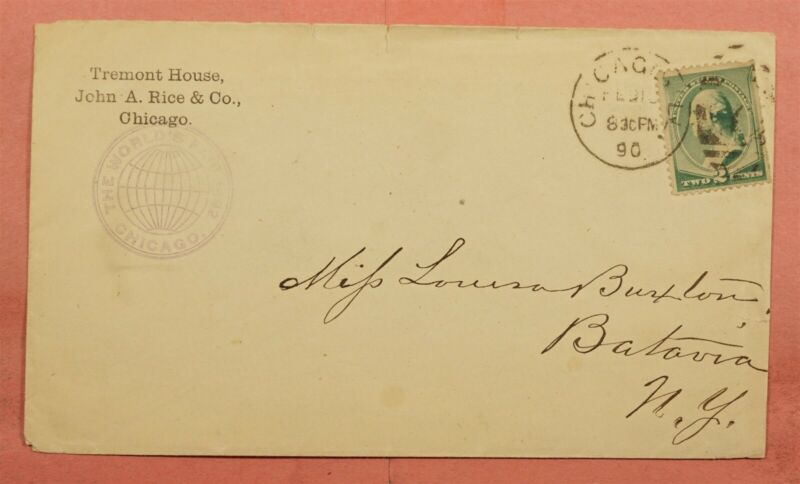 Tremont House,
John A. Rice & Co.,
Chicago.
THE WORLD'S FAIR
CHICAGO.
CHICAGO
830PM
90.
TWO 2 CENTS
Miss Louisa Buxton,
Batavia
N.Y.